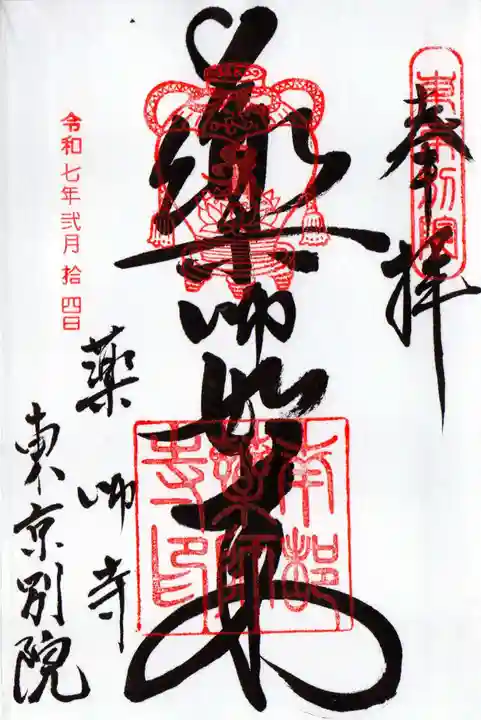 奉拝
東京別院
薬師如来
南都
薬師
寺印
令和七年弐月拾四日
薬師寺
東京別院